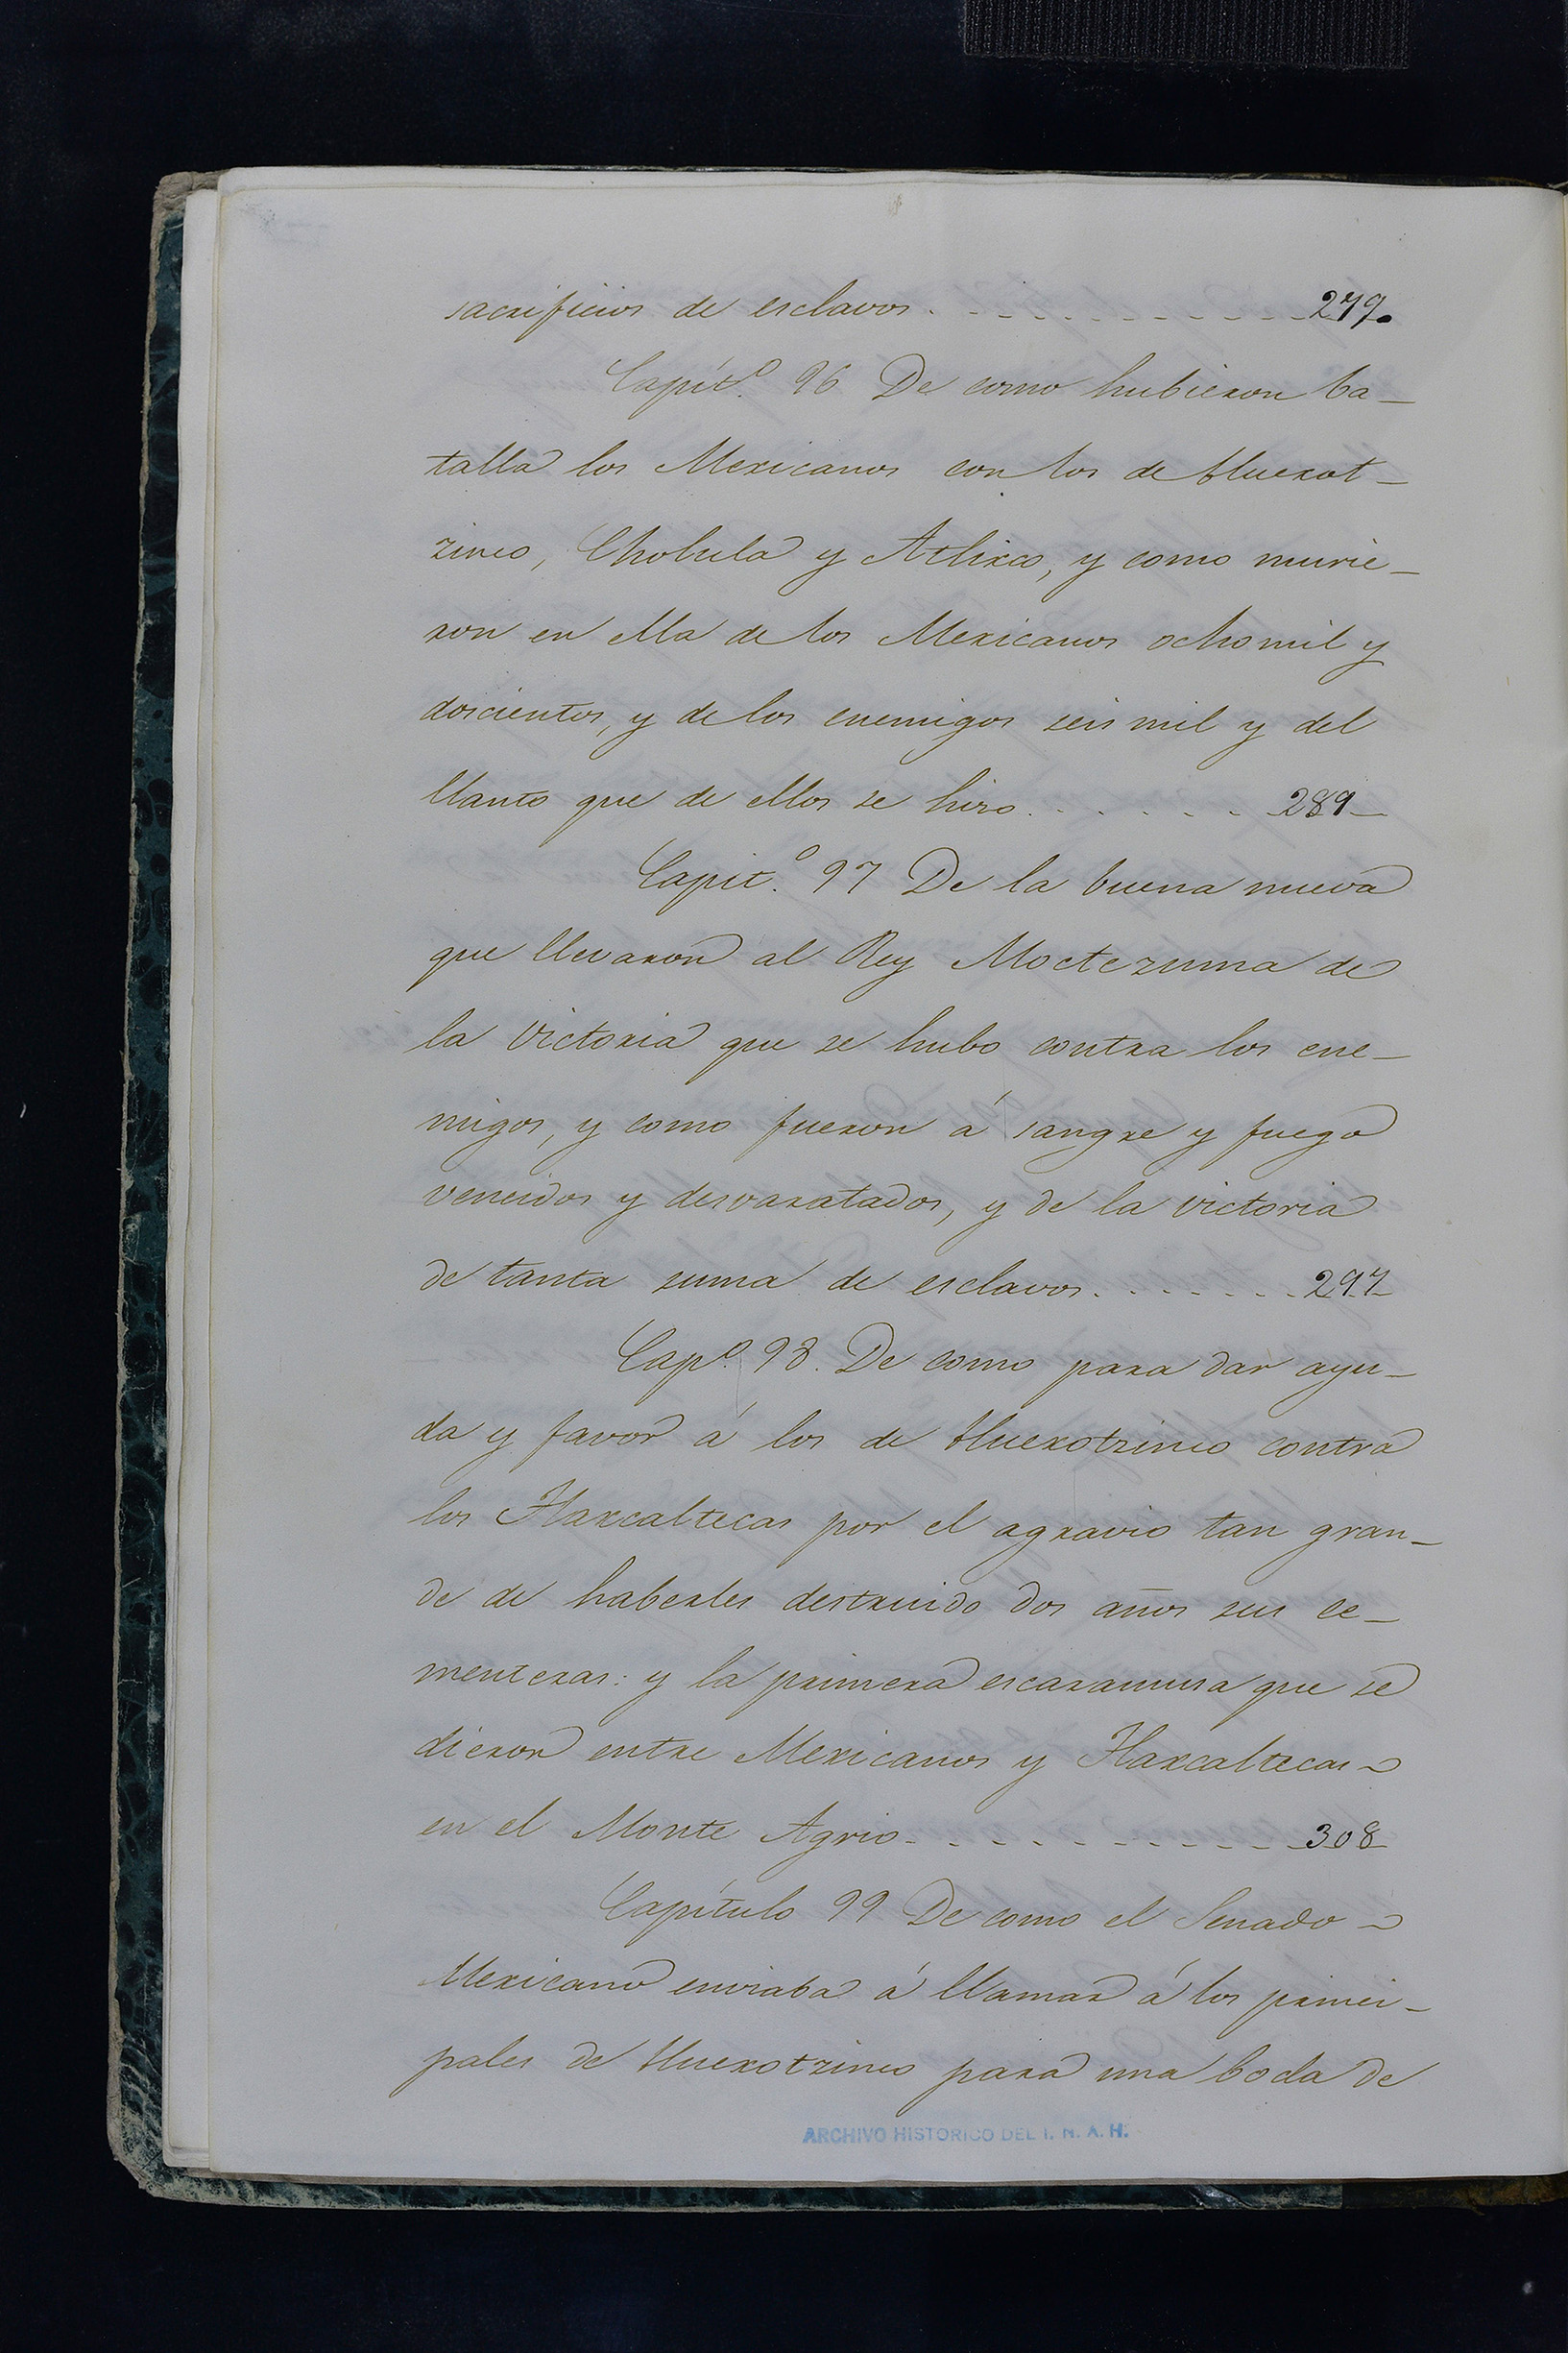 sacrificios de esclavos. - - - - - - - - - - - 279.
Capít.º 96 De como hubieron ba-
talla los Mexicanos con los de Huexot-
zinco, Cholula y Atlixco, y como murie-
ron en ella de los Mexicanos ocho mil y
doscientos, y de los enemigos seis mil y del
llanto que de ellos se hizo. . . . . . . 289-
Capit.º 97 De la buena nueva
que llevaron al Rey Moctezuma de
la victoria que se hubo contra los ene-
migos, y como fueron á sangre y fuego
vencidos y desvaratados, y de la victoria
de tanta suma de esclavos. . . . . . . 297-
Cap.º 98. De como para dar ayu-
da y favor á los de Huexotzinco contra
los Tlaxcaltecas por el agravio tan gran-
de de haberles destruido dos años sus ce-
menteras: y la primera escaramusa que se
dieron entre Mexicanos y Tlaxcaltecas
en el Monte Agrio- - - - - - - - - - - 308
Capítulo 99 De como el Senado
Mexicano enviaba á llamar á los princi-
pales de Huexotzinco para una boda de
ARCHIVO HISTORICO DEL I. N. A. H.